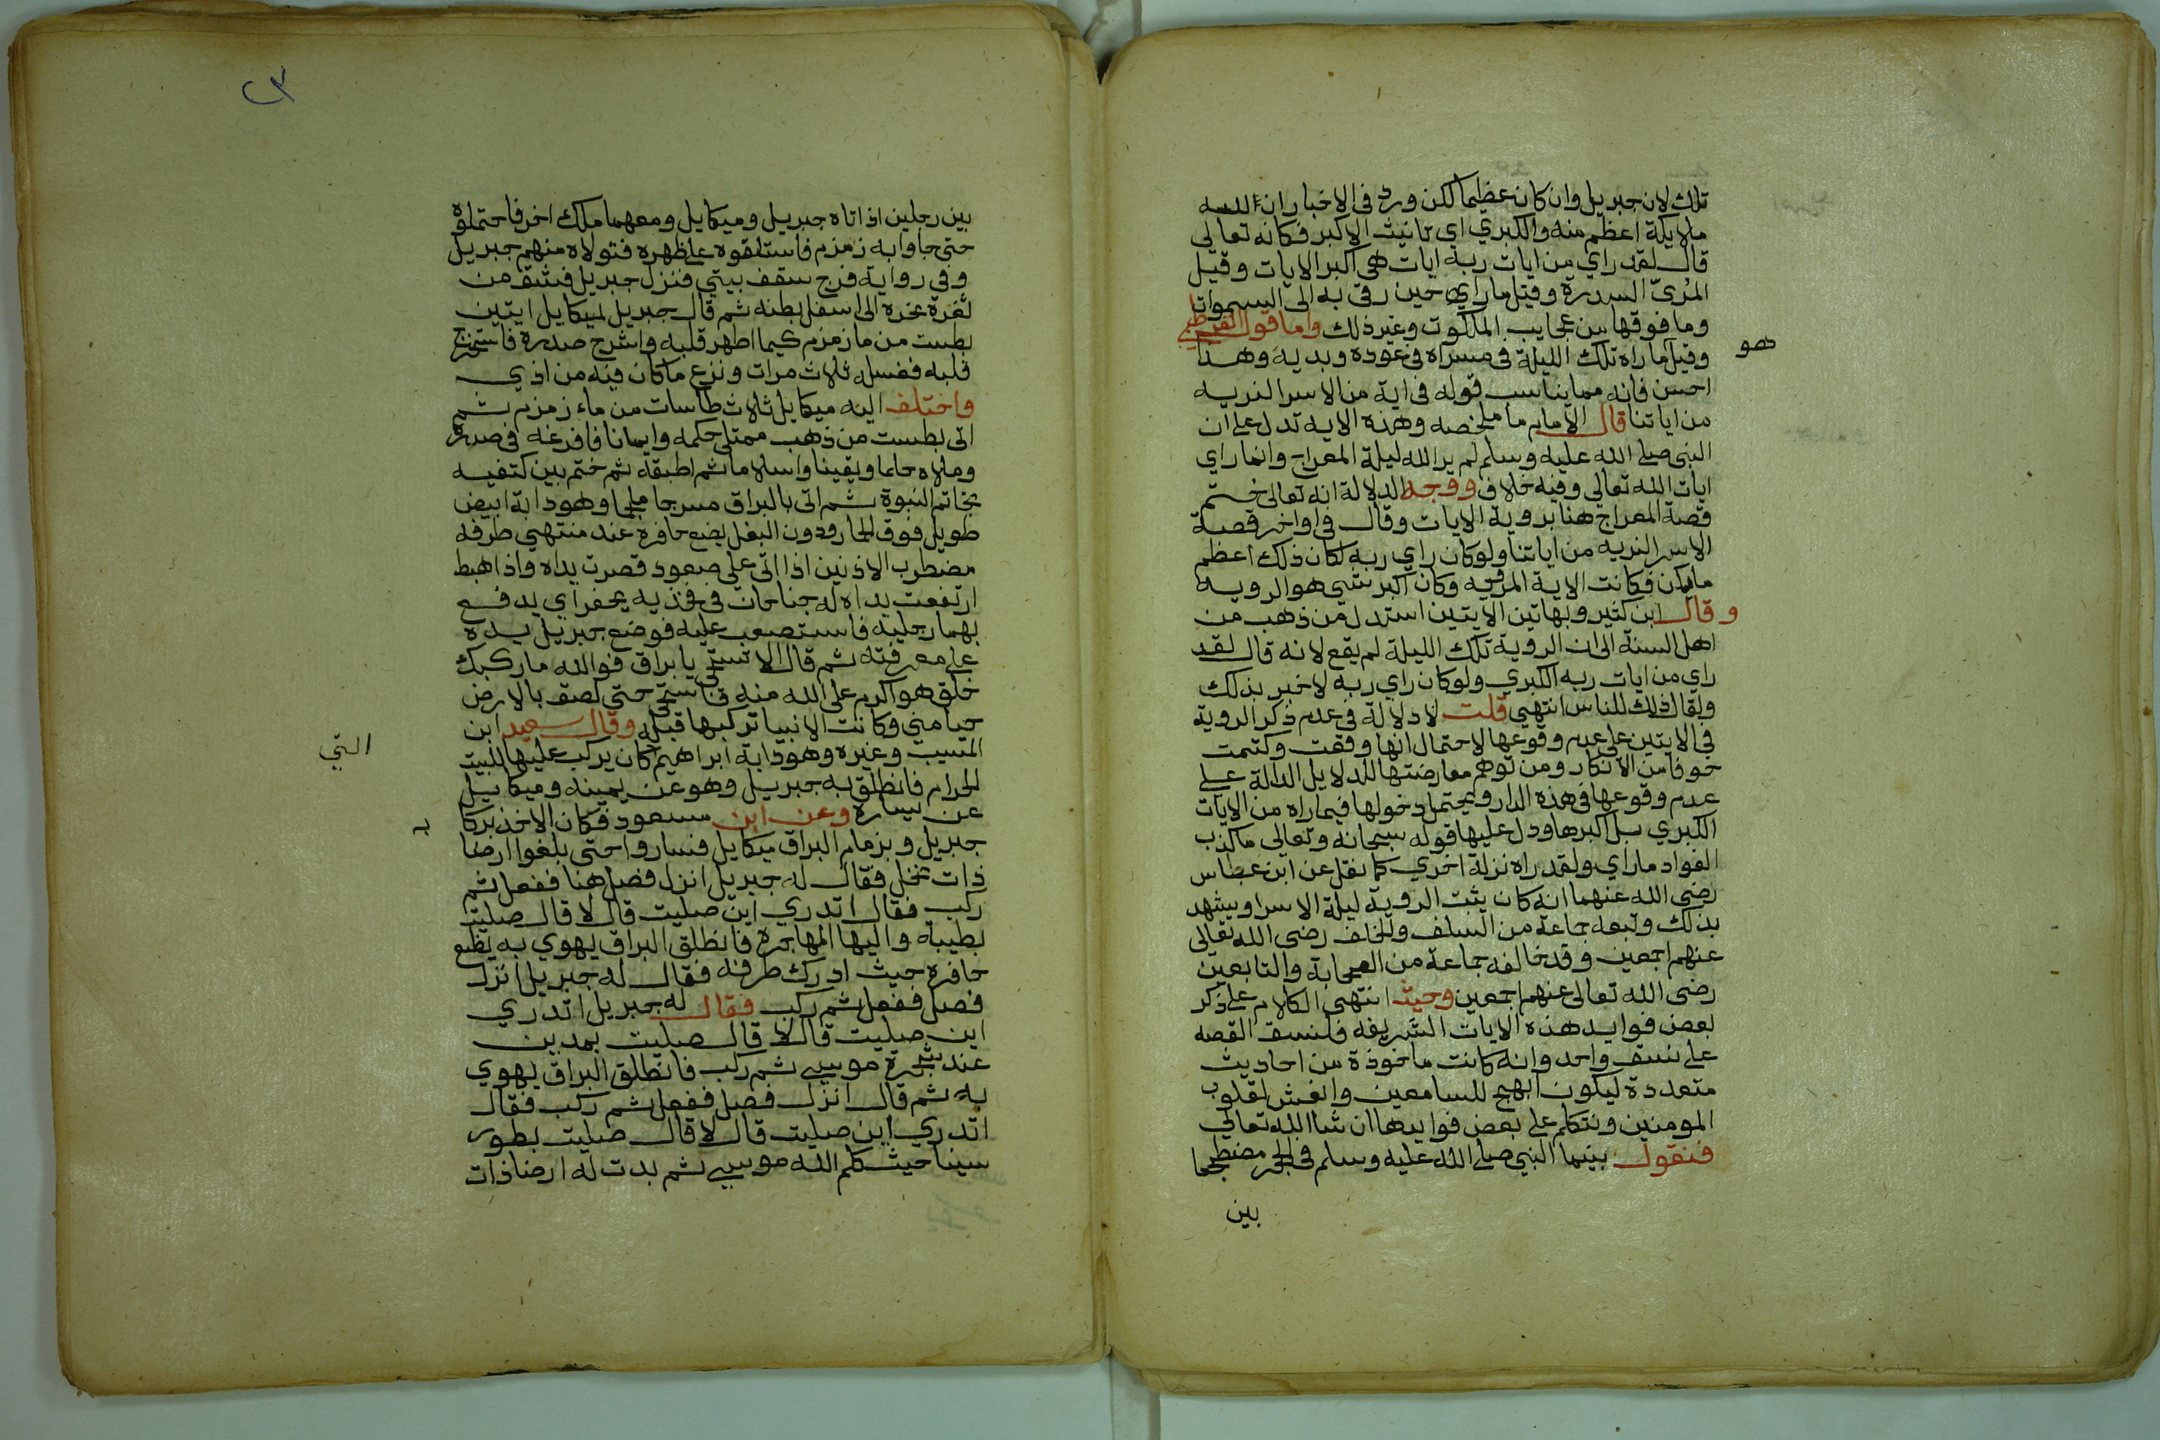 تلك لان جبريل وان كان عظيما لكن ورد في الاخبار ان لله
ملايكة اعظم منه والكبري اي تانيث الاكبر فكانه تعالى
قال لقد راي من ايات ربه ايات هي اكبر الايات وقيل
المرئ السدرة وقيل ما راي حين رقى به الى السموات
وما فوقها من عجايب الملكوت وغير ذلك واما قول القرطبي
هو
وقيل ما راه تلك الليلة في مسراه في عوده وبديه وهذا
احسن فانه مما يناسب قوله في اية من الاسرا لنريه
من اياتنا قال الامام ما ملخصه وهذه الايه تدل على ان
النبي صلى الله عليه وسلم لم ير الله ليلة المعراج وانما راي
ايات الله تعالى وفيه خلاف ووجه الدلالة انه تعالى ختم
قصة المعراج هنا بروية الايات وقال في اواخر قصة
الاسرا لنريه من اياتنا ولو كان راي ربه لكان ذلك اعظم
ما يكن فكانت الاية المرئيه وكان اكبر شي هو الرويه
وقال ابن كثير وبهاتين الايتين استدل من ذهب من
اهل السنة الى ان الروية تلك الليلة لم يقع لانه قال لقد
راي من ايات ربه الكبري ولو كان راي ربه لاخبر بذلك
ولقال ذلك للناس انتهي قلت لا دلالة في عدم ذكر الروية
في الايتين على عدم وقوعها لاحتمال انها وقعت وكتمت
خوفا من الانكار ومن توهم معارضتها للدلايل الدالة على
عدم وقوعها في هذه الدار ويحتمل دخولها فيما راه من الايات
الكبري بل اكبرها ودل عليها قوله سبحانه وتعالى ما كذب
الفواد ما راي ولقد راه نزلة اخري كما نقل عن ابن عباس
رضى الله عنهما انه كان يثبت الروية ليلة الاسرا ويشهد
بذلك وتبعه جماعة من السلف والخلف رضى الله تعالى
عنهم اجمعين وقد خالفه جماعة من الصحابة والتابعين
رضى الله تعالى عنهم اجمعين وحيث انتهى الكلام على ذكر
بعض فوايد هذه الايات الشريفه فلنسق القصه
على نسق واحد وانه كانت ماخوذة من احاديث
متعددة ليكون ابهج للسامعين وانعش لقلوب
المومنين ونتكلم على بعض فوايدها ان شا الله تعالى
فنقول بينما النبي صلى الله عليه وسلم في الحجر مضطجعا
بين
٣
بين رجلين اذ اتاه جبريل وميكايل ومعهما ملك اخر فاحتملوه
حتى جاوا به زمزم فاستلقوه على ظهره فتولاه منهم جبريل
وفي رواية فرج سقف بيتي فنزل جبريل فشق من
ثغرة نحره الى اسفل بطنه ثم قال جبريل لميكايل ايتين
بطست من ما زمزم كيما اطهر قلبه واشرح صدره فاستخرج
قلبه فغسله ثلاث مرات ونزع ما كان فيه من اذي
واختلف اليه ميكايل ثلاث طاسات من ماء زمزم ثم
اتى بطست من ذهب ممتلي حكمه وايمانا فافرغه في صدره
وملاه حلما ويقينا واسلاما ثم اطبقه ثم ختم بين كتفيه
بخاتم النبوة ثم اتى بالبراق مسرجا ملجما وهو دابة ابيض
طويل فوق الحمار ودون البغل يضع حافره عند منتهي طرفه
مضطرب الاذنين اذا اتى على صعود قصرت يداه واذا هبط
ارتفعت يداه له جناحان في فخذيه يحفز اي يدفع
بهما رجليه فاستصعب عليه فوضع جبريل يده
على معرفته ثم قال الا تستحي يا براق فوالله ما ركبك
خلق هو اكرم على الله منه فاستحى حتى لصق بالارض
حيا مني وكانت الانبيا تركبها قبله وقال سعيد ابن
المسيب وغيره وهو دابة ابراهيم كان يركب عليها للبيت
التي
الحرام فانطلق به جبريل وهو عن يمينه وميكايل
عن يساره وعن ابن مسعود فكان الاخذ بركا
ب
جبريل وبزمام البراق ميكايل فساروا حتى بلغوا ارضا
ذات نخل فقال له جبريل انزل فصل هنا ففعل ثم
ركب فقال اتدري اين صليت قال لا قال صليت
بطيبة واليها المهاجرة فانطلق البراق يهوي به يضع
حافره حيث ادرك طرفه فقال له جبريل انزل
فصل ففعل ثم ركب فقال له جبريل اتدري
اين صليت قال لا قال صليت بمدين
عند شجرة موسى ثم ركب فانطلق البراق يهوي
به ثم قال انزل فصل ففعل ثم ركب فقال
اتدري اين صليت قال لا قال صليت بطور
سينا حيث كلم الله موسى ثم بدت له ارضا ذات